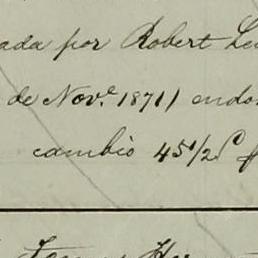 ada por Robert Le
de Nov.e 1871) endo
cambio 45 1/2 p